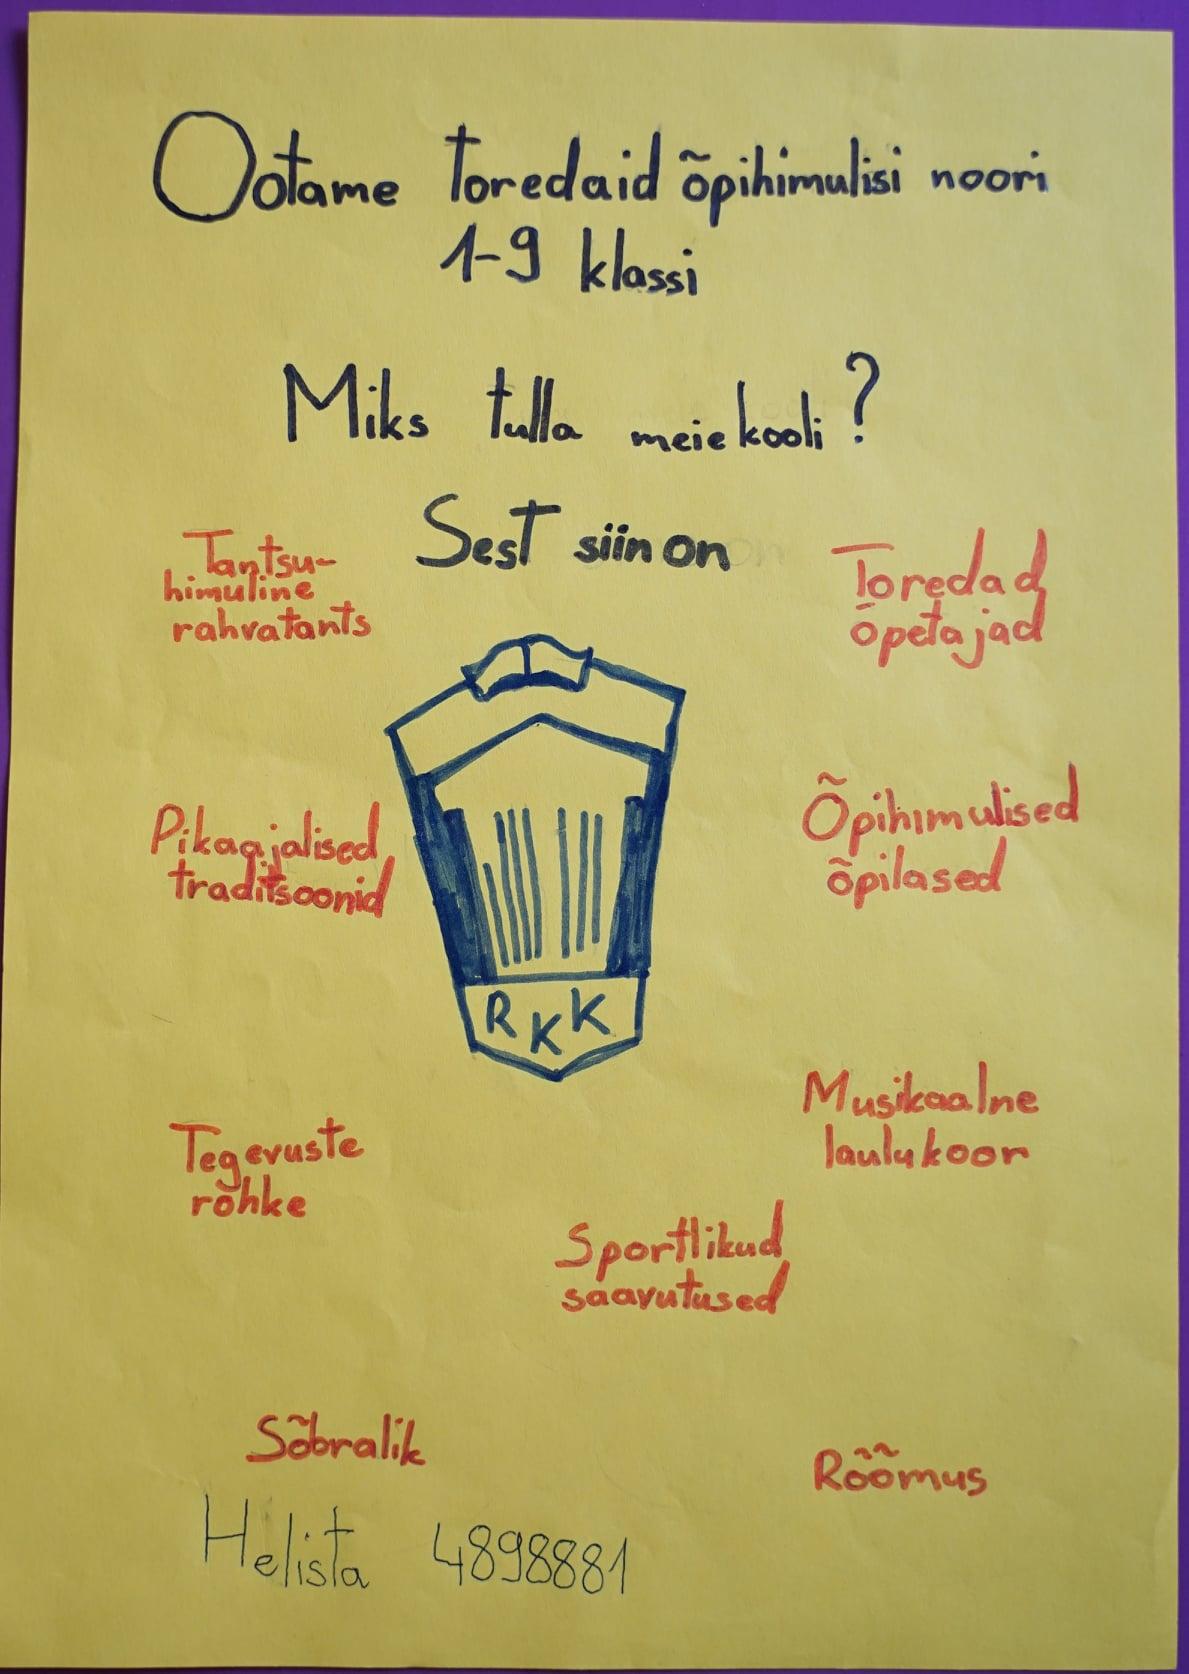 Ootame toredaid õpihimulisi noori
1-9 klassi
Miks tulla meie kooli?
Sest siin on
Tantsu-
himuline
rahvatants
Toredad
õpetajad
Pikaajalised
traditsoonid
Õpihimulised
õpilased
R K K
Musikaalne
laulukoor
Tegevuste
rõhke
Sportlikud
saavutused
Sõbralik
Rõõmus
Helista 4898881